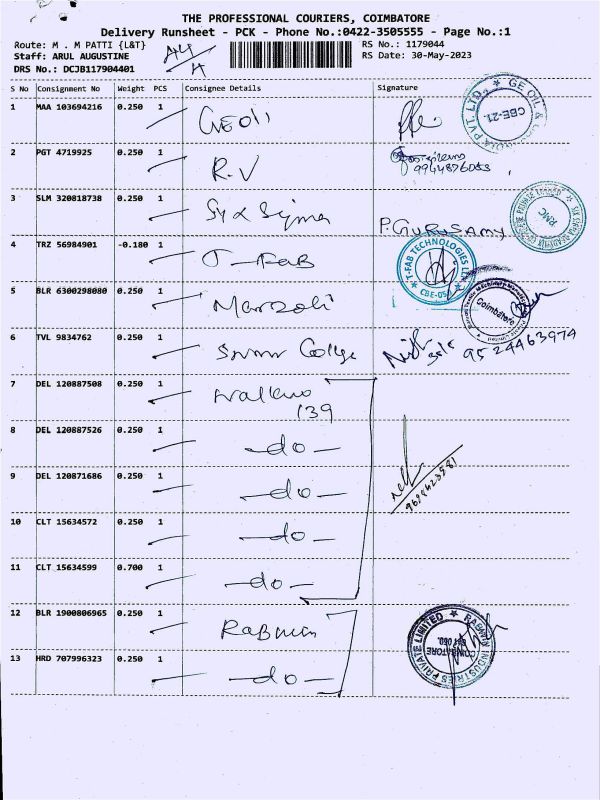 THE PROFESSIONAL COURIERS, COIMBATORE
Delivery Runsheet - PCK - Phone No.:0422-3505555 - Page No.:1
Route: M . M PATTI {L&T} RS No.: 1179044
Staff: ARUL AUGUSTINE RS Date: 30-May-2023
DRS No.: DCJB117904401
S No Consignment No Weight PCS Consignee Details Signature
1 MAA 103694216 0.250 1
GE OIL &
CBE-21.
PVT. LTD.
2 PGT 4719925 0.250 1
R.V
9944876053
3 SLM 320818738 0.250 1
P.GURUSAMY
RMC
4 TRZ 56984901 -0.180 1
T-FAB
T-FAB TECHNOLOGIES
CBE-05
5 BLR 6300298080 0.250 1
Coimbatore
6 TVL 9834762 0.250 1
College
95 24463974
7 DEL 120887508 0.250 1
139
8 DEL 120887526 0.250 1
-do-
9 DEL 120871686 0.250 1
-do-
10 CLT 15634572 0.250 1
-do-
11 CLT 15634599 0.700 1
-do-
12 BLR 1900806965 0.250 1
INDUSTRIES PRIVATE LIMITED
13 HRD 707996323 0.250 1
-do-